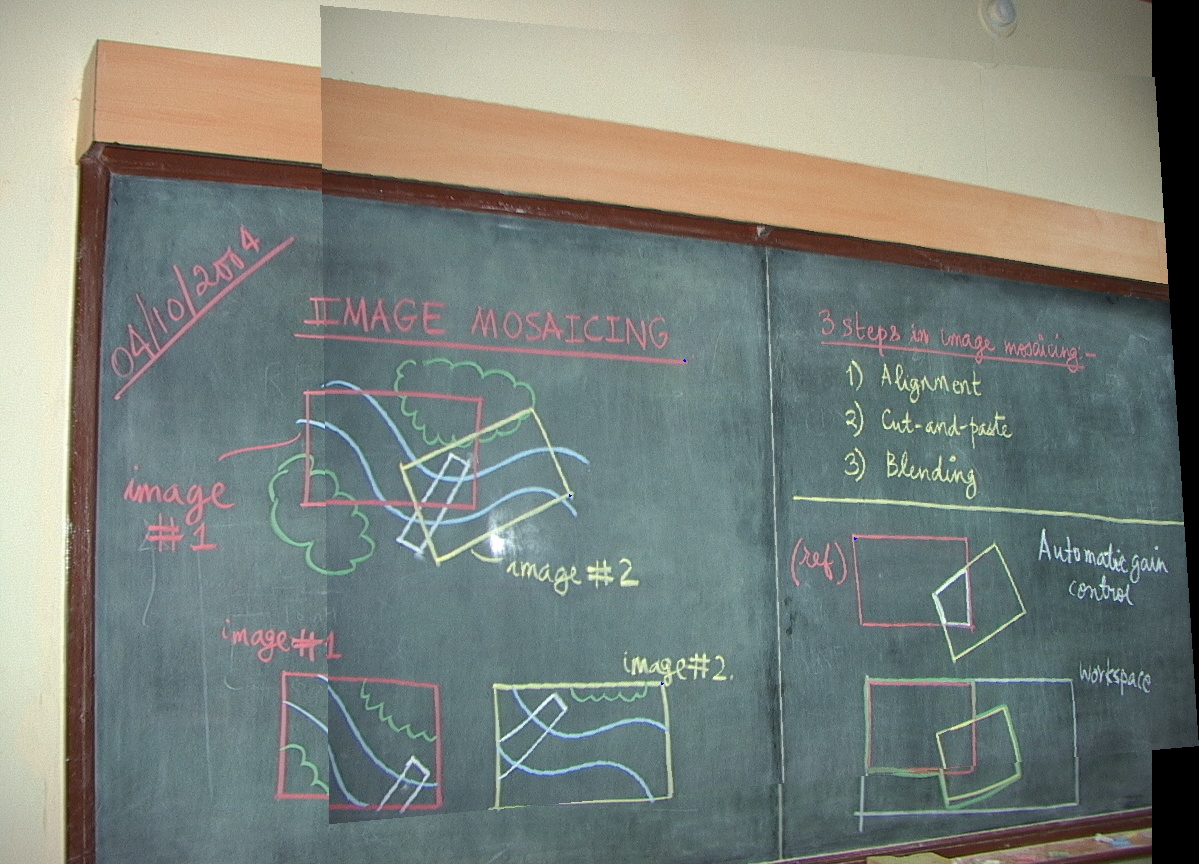 04/10/2004
IMAGE MOSAICING
image
#1
image #2
image #1
image #2.
3 steps in image mosaicing:-
1) Alignment
2) Cut-and-paste
3) Blending
(ref)
Automatic gain
control
workspace